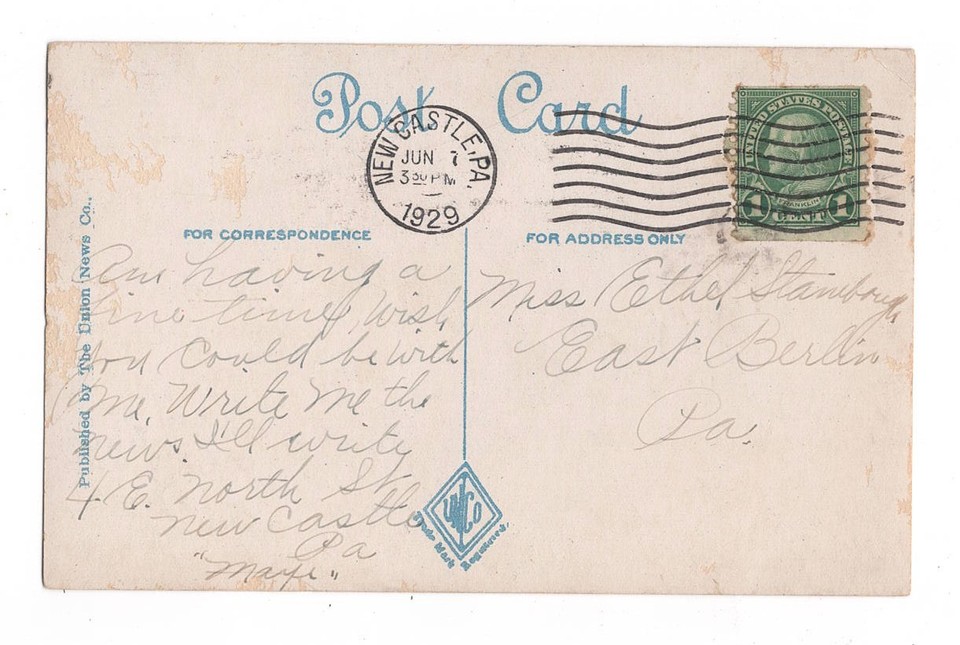 Post Card
NEW CASTLE, PA.
JUN 7
3 30 PM
1929
UNITED STATES POSTAGE
FRANKLIN
1 CENT 1
FOR CORRESPONDENCE
FOR ADDRESS ONLY
Am having a
fine time, wish
you could be with
me. Write me the
news. I'll write
4 E. North St.
New Castle
Pa
Miss Ethel Stambough
East Berlin
Pa.
Published by The Union News Co.,
UNCo
Trade Mark Registered.